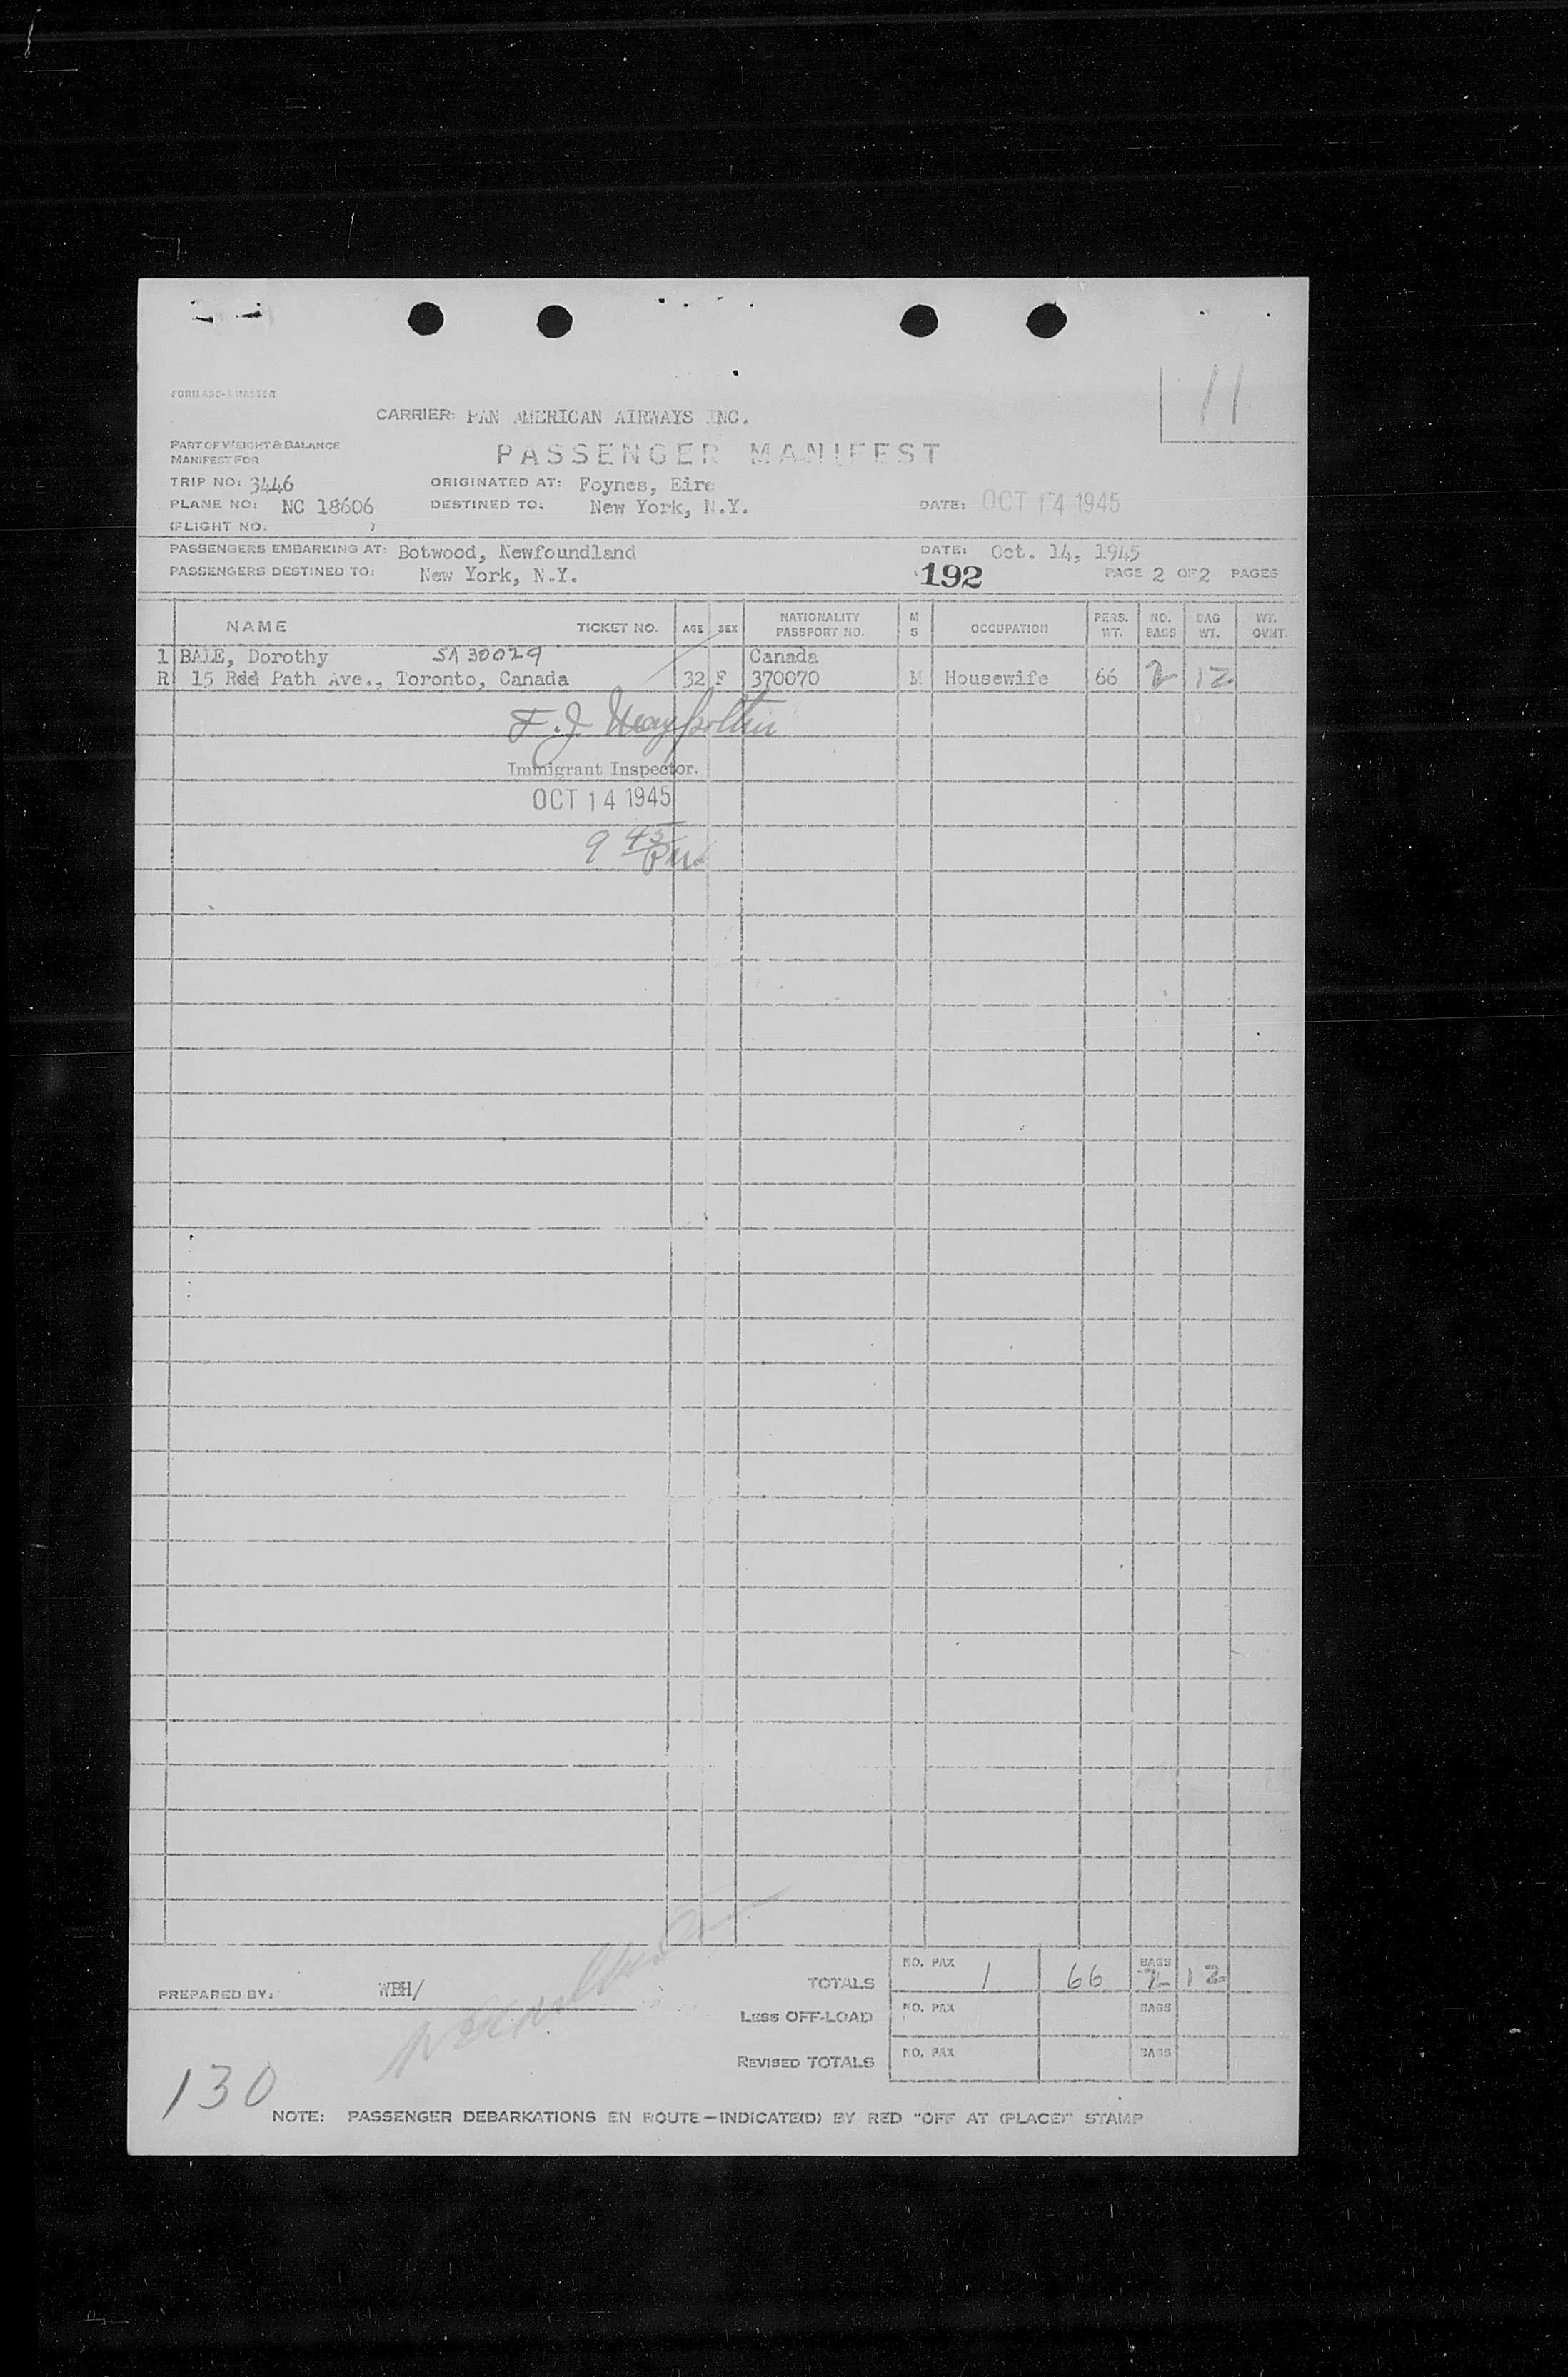 11
FORM 630-1 MASTER
CARRIER: PAN AMERICAN AIRWAYS INC.
PART OF WEIGHT & BALANCE
MANIFEST FOR
PASSENGER MANIFEST
TRIP NO: 3446 ORIGINATED AT: Foynes, Eire
PLANE NO: NC 18606 DESTINED TO: New York, N.Y. DATE: OCT 14 1945
(FLIGHT NO: )
PASSENGERS EMBARKING AT: Botwood, Newfoundland DATE: Oct. 14, 1945
PASSENGERS DESTINED TO: New York, N.Y. 192 PAGE 2 OF 2 PAGES
NAME TICKET NO. AGE SEX NATIONALITY PASSPORT NO. M S OCCUPATION PERS. WT. NO. BAGS BAG WT. WT. OVMT
1 BALE, Dorothy SA 30029 Canada
R 15 Rdd Path Ave., Toronto, Canada 32 F 370070 M Housewife 66 2 12
F. J.
Immigrant Inspector.
OCT 14 1945
9 45 PM.
TOTALS NO. PAX 1 66 BAGS 2 12
PREPARED BY: WBH/
LESS OFF-LOAD NO. PAX BAGS
REVISED TOTALS NO. PAX BAGS
130
NOTE: PASSENGER DEBARKATIONS EN ROUTE—INDICATE(D) BY RED "OFF AT (PLACE)" STAMP